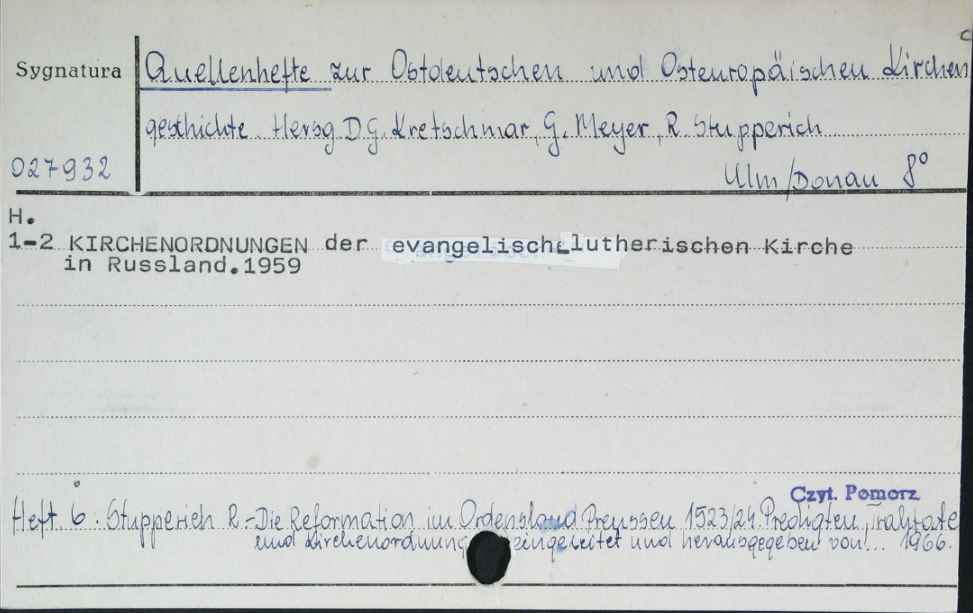 Sygnatura
Quellenhefte zur Ostdeutschen und Osteuropäischen Kirchen
geschichte. Hersg D.G. Kretschmar, G. Meyer, R. Stupperich
027932
Ulm/Donau 8°
H.
1-2 KIRCHENORDNUNGEN der evangelisch-lutherischen Kirche
in Russland.1959
Czyt. Pomorz
Heft 6. Stupperich R.-Die Reformation im Ordensland Preussen 1523/24. Predigten, Traktate
und Kirchenordnung eingeleitet und herausgegeben von... 1966.